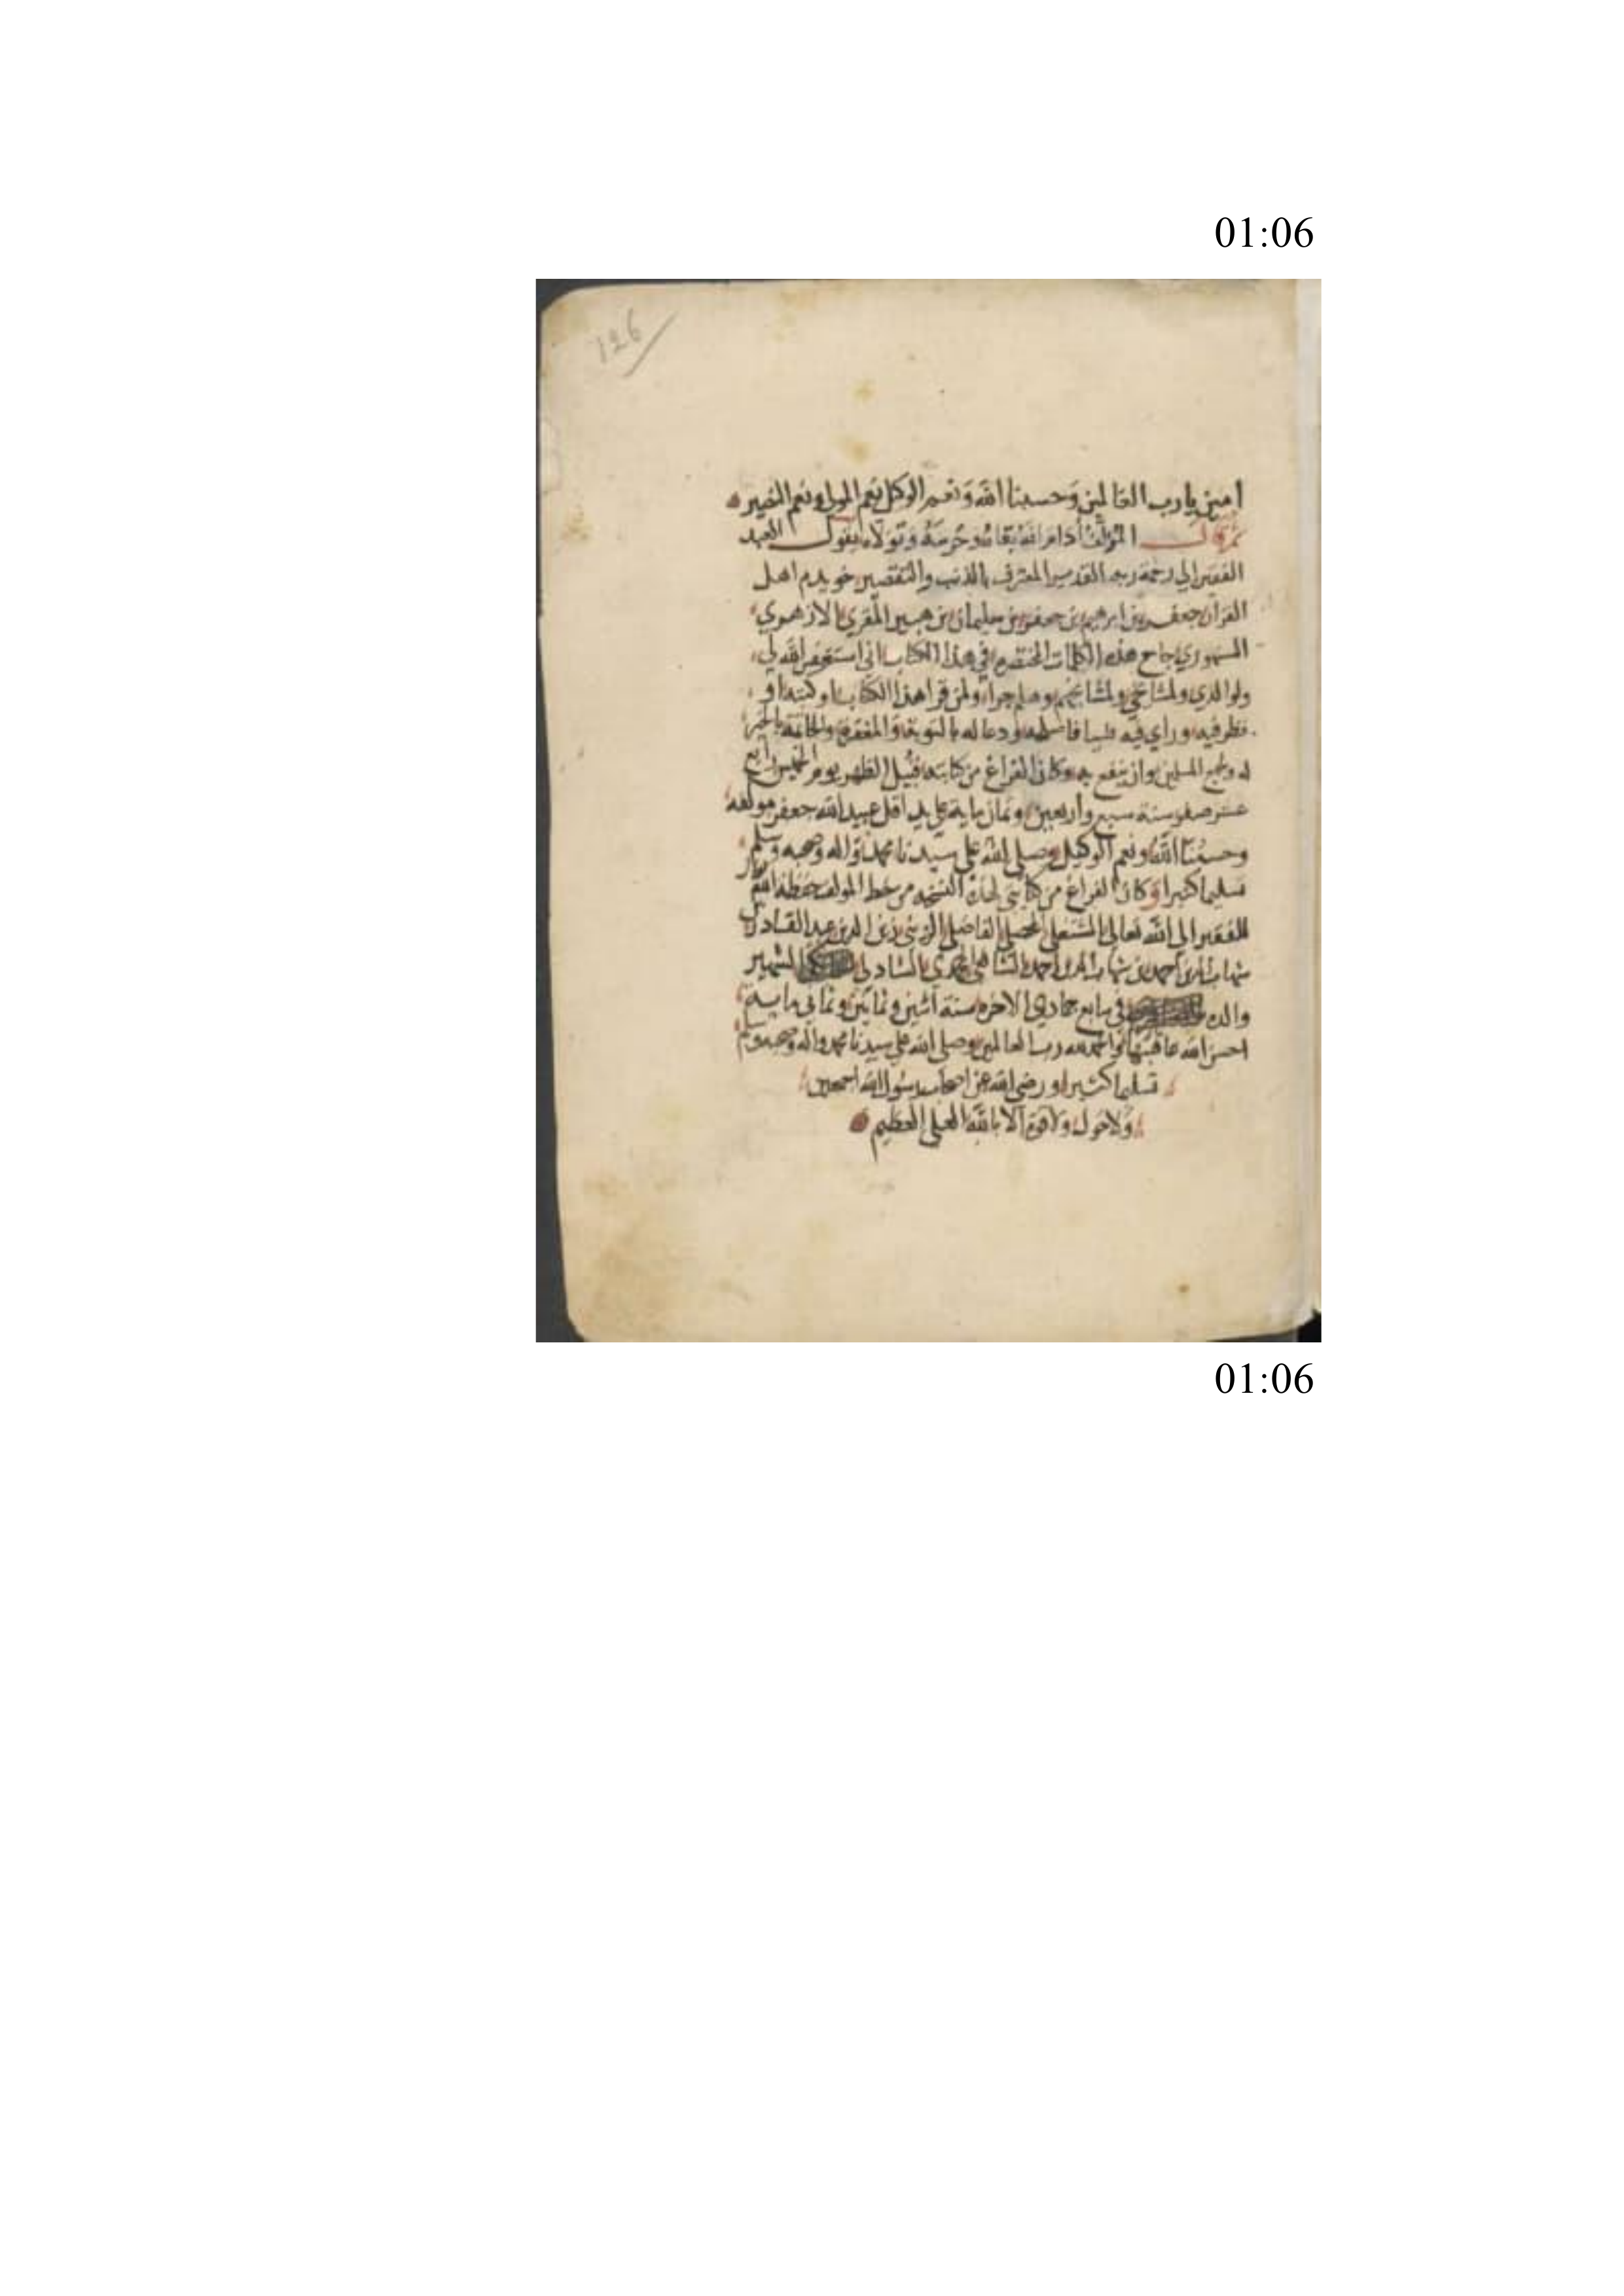 01:06
126
امين يارب العالمين وحسبنا الله ونعم الوكيل نعم المولى ونعم النصير
ثم قال المؤلف أدام الله بقاه وحرسه وتولاه يقول العبد
الفقير الي رحمة ربه القدير المعترف بالذنب والتقصير خويدم اهل
القران جعفر بن ابرهيم بن جعفر بن سليمان بن المقري الازهري
السنهوري جامع هذه الكلمات في هذا الكتاب اني استغفر الله لي
ولوالدي ولمشايخي ولمشايخهم وهلم جرا ولمن قرا هذا الكتاب او كتبه او
نظر فيه وراي فيه ودعا له بالتوبة والمغفرة والخاتمة بالخير
له ولجميع المسلمين وان ينفع به وكان الفراغ من كتابته قبيل الظهر يوم الخميس رابع
عشر صفر سنة سبع واربعين وثمان ماية علي يد اقل عبيد الله جعفر مولفه
وحسبنا الله ونعم الوكيل وصلى الله على سيدنا محمد واله وصحبه وسلم
تسليما كثيرا وكان الفراغ من كتابتي لهذه النسخه من خط المولف حفظه الله
للفقير الى الله تعالى المشتغل المحصل الفاضل الزيني زين الدين عبد القادر بن
شهاب الدين احمد بن شهاب الدين احمد الشاذلي الشهير
والده في سابع جمادي الاخره سنة اثنين وثمانين وثماني ماية
احسن الله عاقبتها والحمد لله رب العالمين وصلى الله على سيدنا محمد واله وصحبه وسلم
تسليما كثيرا ورضي الله عن اصحاب رسول الله اجمعين
ولاحول ولاقوة الا بالله العلي العظيم
01:06